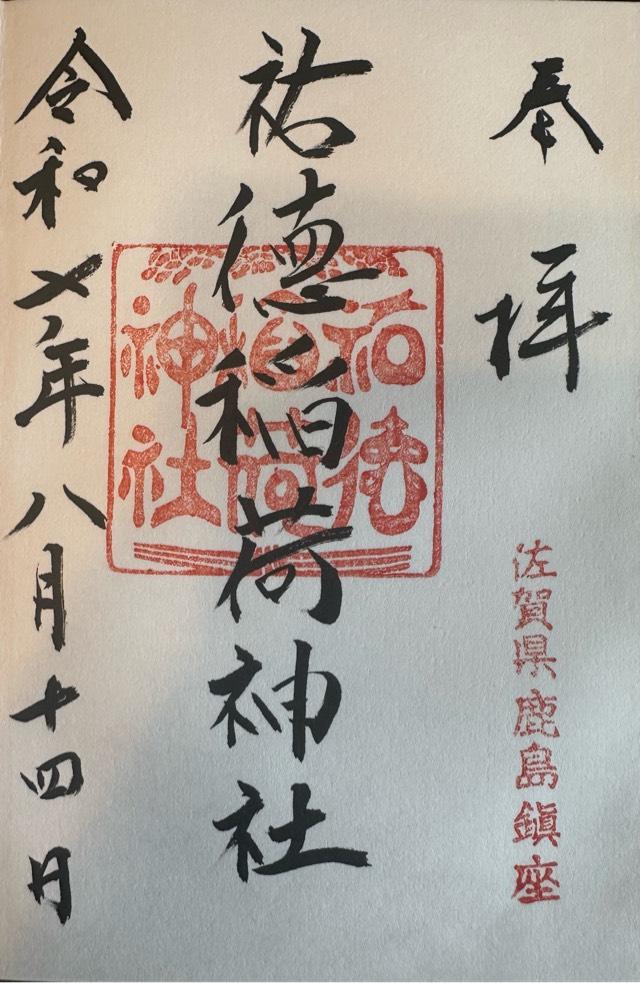 奉拝
佐賀県鹿島鎮座
祐徳稲荷神社
祐徳
稲荷
神社
令和七年八月十四日